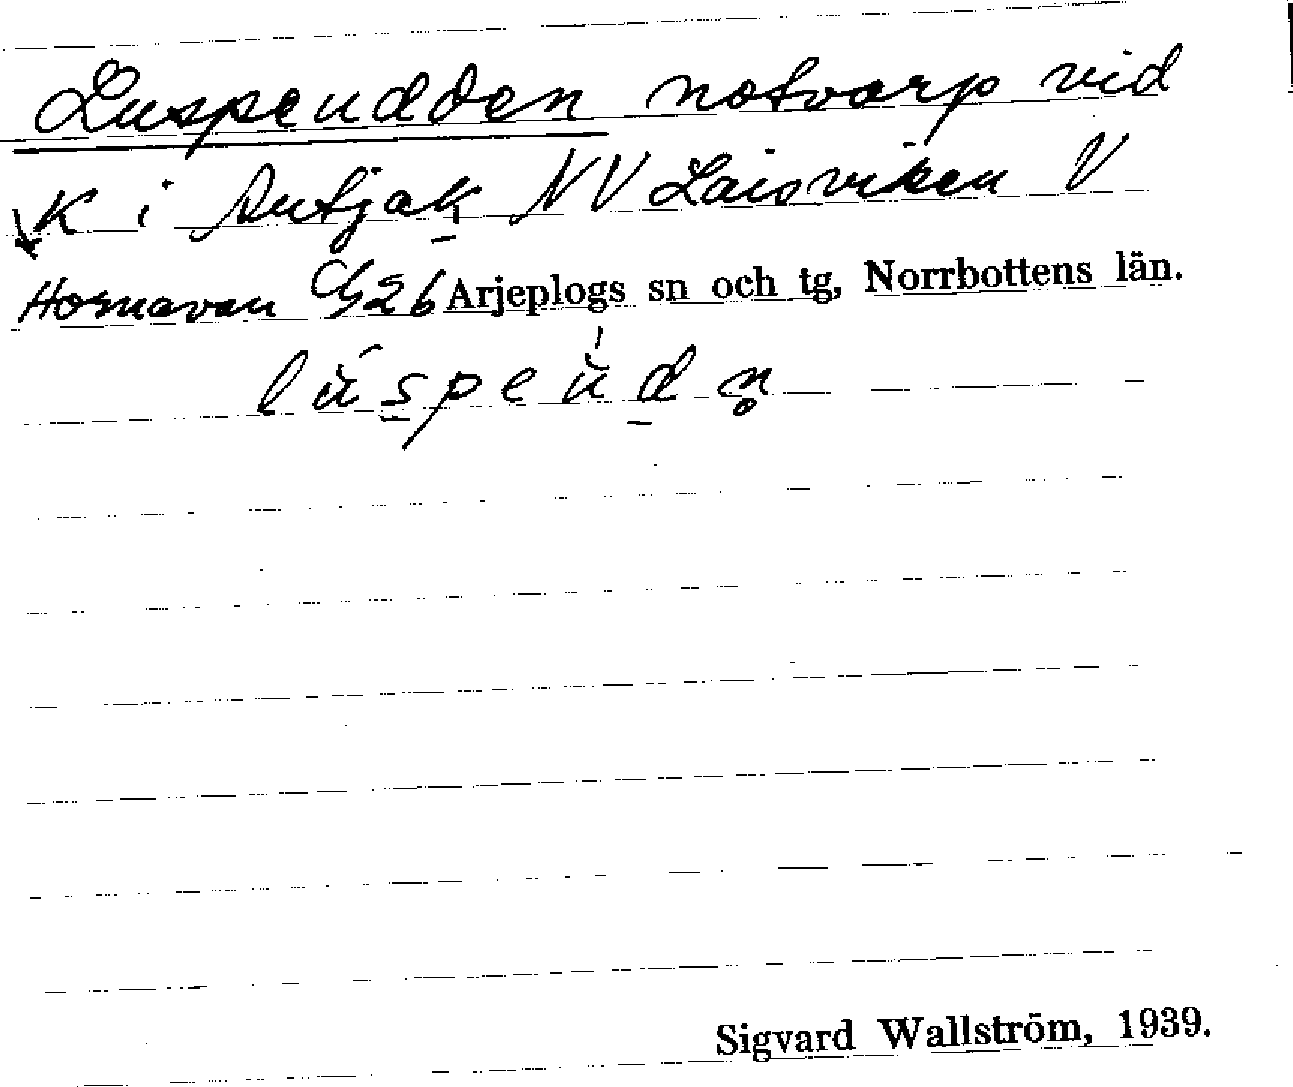 Luspeudden notvarp vid
K i Autjak NV Laisviken V
Hornavan 26 Arjeplogs sn och tg, Norrbottens län.
lúspeùdn̥
Sigvard Wallström, 1939.